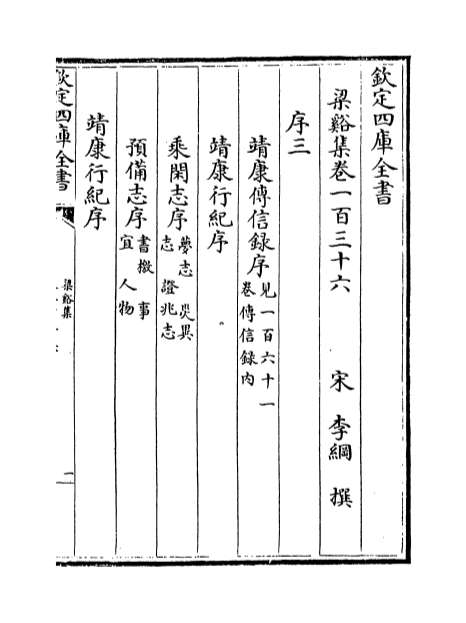 欽定四庫全書
梁谿集卷一百三十六
宋 李綱 撰
序三
靖康傳信錄序見一百六十一
卷傳信錄内
靖康行紀序
乘閑志序夢志 災異
志 證兆志
預備志序書檄 事
宜 人物
靖康行紀序
欽定四庫全書
梁谿集
一